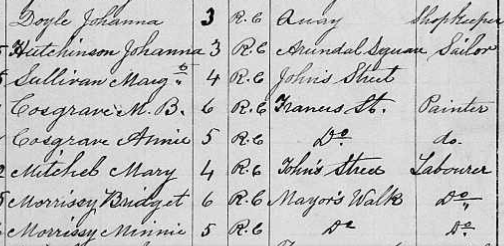 Doyle Johanna 3 R.C Quay Shopkeeper
Hutchinson Johanna 3 R.C Arundal Square Sailor
Sullivan Margt 4 R.C John's Street
Cosgrave M. B. 6 R.C Francis St. Painter
Cosgrave Annie 5 R.C Do do.
Mitchel Mary 4 R.C John's Street Labourer
Morrissy Bridget 6 R.C Mayor's Walk Do
Morrissy Minnie 5 R.C Do Do